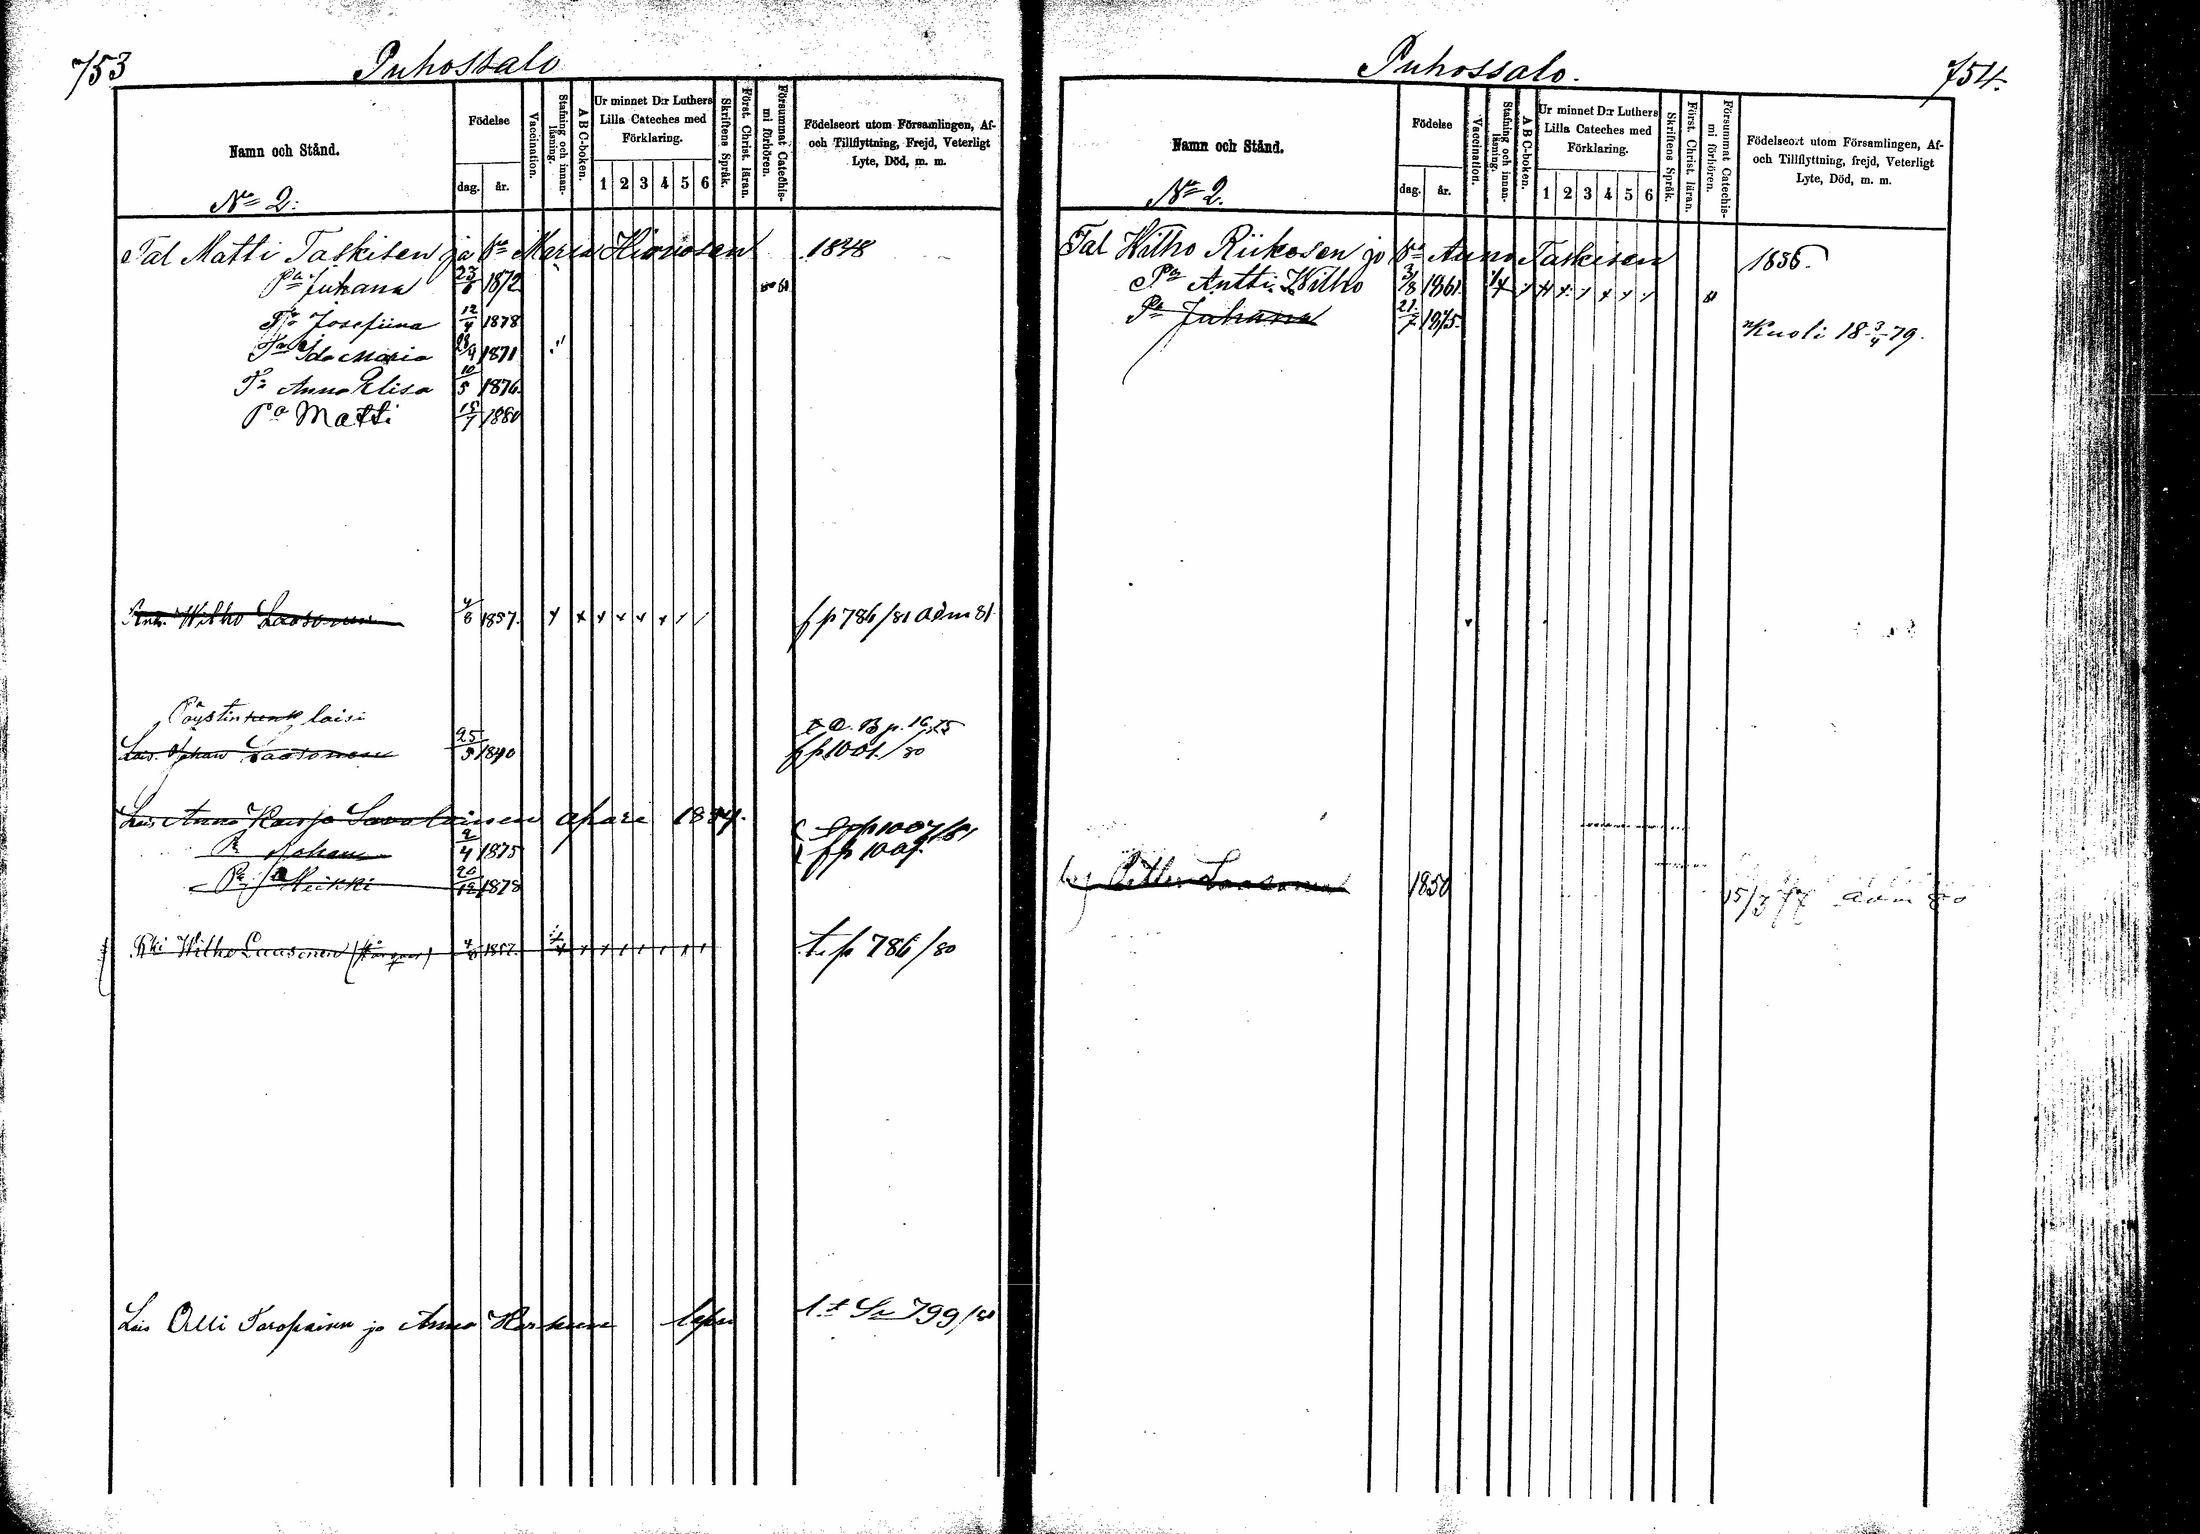 753
Puhossalo
Namn och Stånd.
No 2:
Födelse
dag. år.
Vaccination.
Stafning och innanläsning.
A B C-boken.
Ur minnet D:r Luthers Lilla Cateches med Förklaring.
1 2 3 4 5 6
Skriftens Språk.
Först. Christ. läran.
Försummat Catechismi förhören.
Födelseort utom Församlingen, Af- och Tillflyttning, Frejd, Veterligt Lyte, Död, m. m.
Tal Matti Taskisen ja Vo Maria Hirvosen 1848
Pa Juhana 23/6 1872
Tr Josefiina 12/4 1878
Ida Maria 1871
Tr Anna Elisa 10/5 1876
Pa Matti 15/7 1880
Wilho Laasonen 4/8 1857. fp 786/81 adm 81
loisi
Lois. Johan Laasonen 25/5 1840 fp 1001/80
Lois Anna Kaisa Savolainen
Johan 2/4 1875
Pa Heikki 20/12 1878
Wilho Laasonen 4/8 1857. t. fp 786/80
Lois Olli Toropainen ja Anna 799/80
Puhossalo.
754.
Namn och Stånd.
No 2.
Födelse
dag. år.
Vaccination.
Stafning och innanläsning.
A B C-boken.
Ur minnet D:r Luthers Lilla Cateches med Förklaring.
1 2 3 4 5 6
Skriftens Språk.
Först. Christ. läran.
Försummat Catechismi förhören.
Födelseort utom Församlingen, Af- och Tillflyttning, frejd, Veterligt Lyte, Död, m. m.
Tal Wilho Riikosen ja Vo Anna Taskisen 1836.
Pa Antti Wilho 3/8 1861.
Pa Juhana 21/7 1875. Kuoli 18 3/4 79.
Petter Laasonen 1850 adm 80